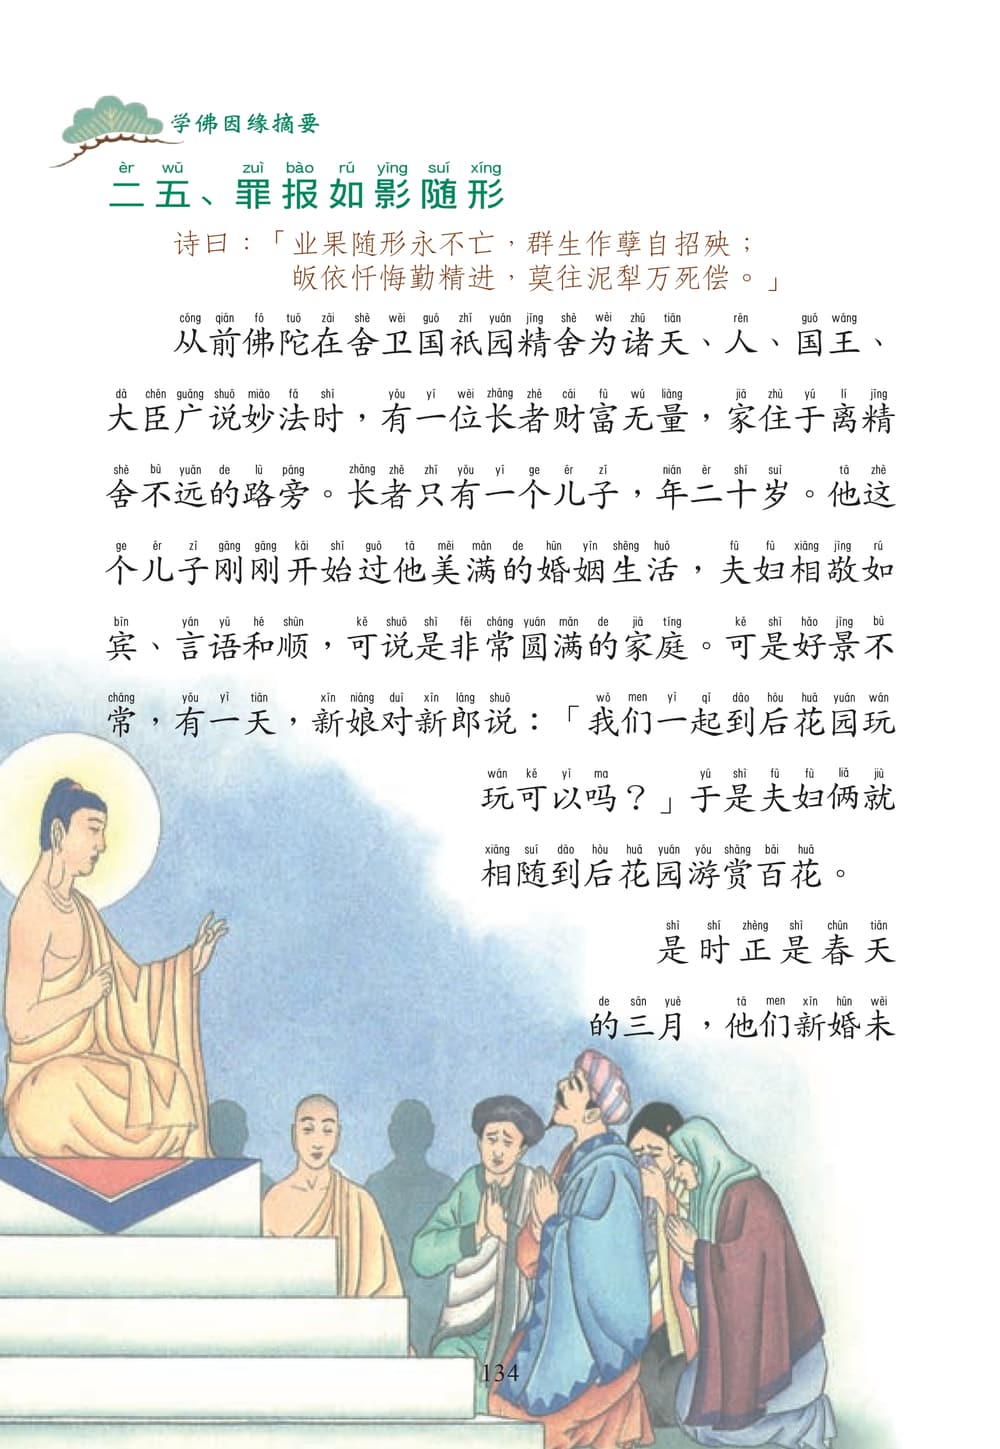 学佛因缘摘要
èr wǔ zuì bào rú yǐng suí xíng
二五、罪报如影随形
诗曰：「业果随形永不亡，群生作孽自招殃；
皈依忏悔勤精进，莫往泥犁万死偿。」
cóng qián fó tuó zài shè wèi guó zhī yuán jīng shè wèi zhū tiān rén guó wáng
从前佛陀在舍卫国祇园精舍为诸天、人、国王、
dà chén guǎng shuō miào fǎ shí yǒu yí wèi zhǎng zhě cái fù wú liàng jiā zhù yú lí jīng
大臣广说妙法时，有一位长者财富无量，家住于离精
shè bù yuǎn de lù páng zhǎng zhě zhǐ yǒu yí ge ér zǐ nián èr shí suì tā zhè
舍不远的路旁。长者只有一个儿子，年二十岁。他这
ge ér zǐ gāng gāng kāi shǐ guò tā měi mǎn de hūn yīn shēng huó fū fù xiāng jìng rú
个儿子刚刚开始过他美满的婚姻生活，夫妇相敬如
bīn yán yǔ hé shùn kě shuō shì fēi cháng yuán mǎn de jiā tíng kě shì hǎo jǐng bù
宾、言语和顺，可说是非常圆满的家庭。可是好景不
cháng yǒu yì tiān xīn niáng duì xīn láng shuō wǒ men yì qǐ dào hòu huā yuán wán
常，有一天，新娘对新郎说：「我们一起到后花园玩
wán kě yǐ ma yú shì fū fù liǎ jiù
玩可以吗？」于是夫妇俩就
xiāng suí dào hòu huā yuán yóu shǎng bǎi huā
相随到后花园游赏百花。
shì shí zhèng shì chūn tiān
是时正是春天
de sān yuè tā men xīn hūn wèi
的三月，他们新婚未
134